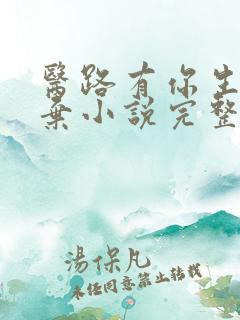 醫路有你生
棄小說完整
湯保凡
未經同意禁止轉載